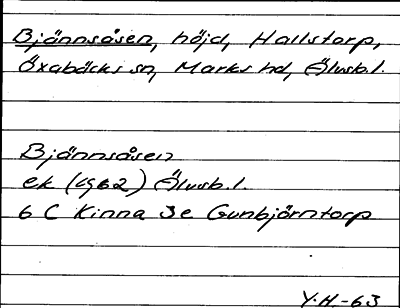 Bjännsåsen, höjd, Hallstorp,
Öxabäcks sn, Marks hd, Älvsb.l.
Bjännsåsen
ek (1962) Älvsb.l.
6 C Kinna 3e Gunbjörntorp
Y.H-63